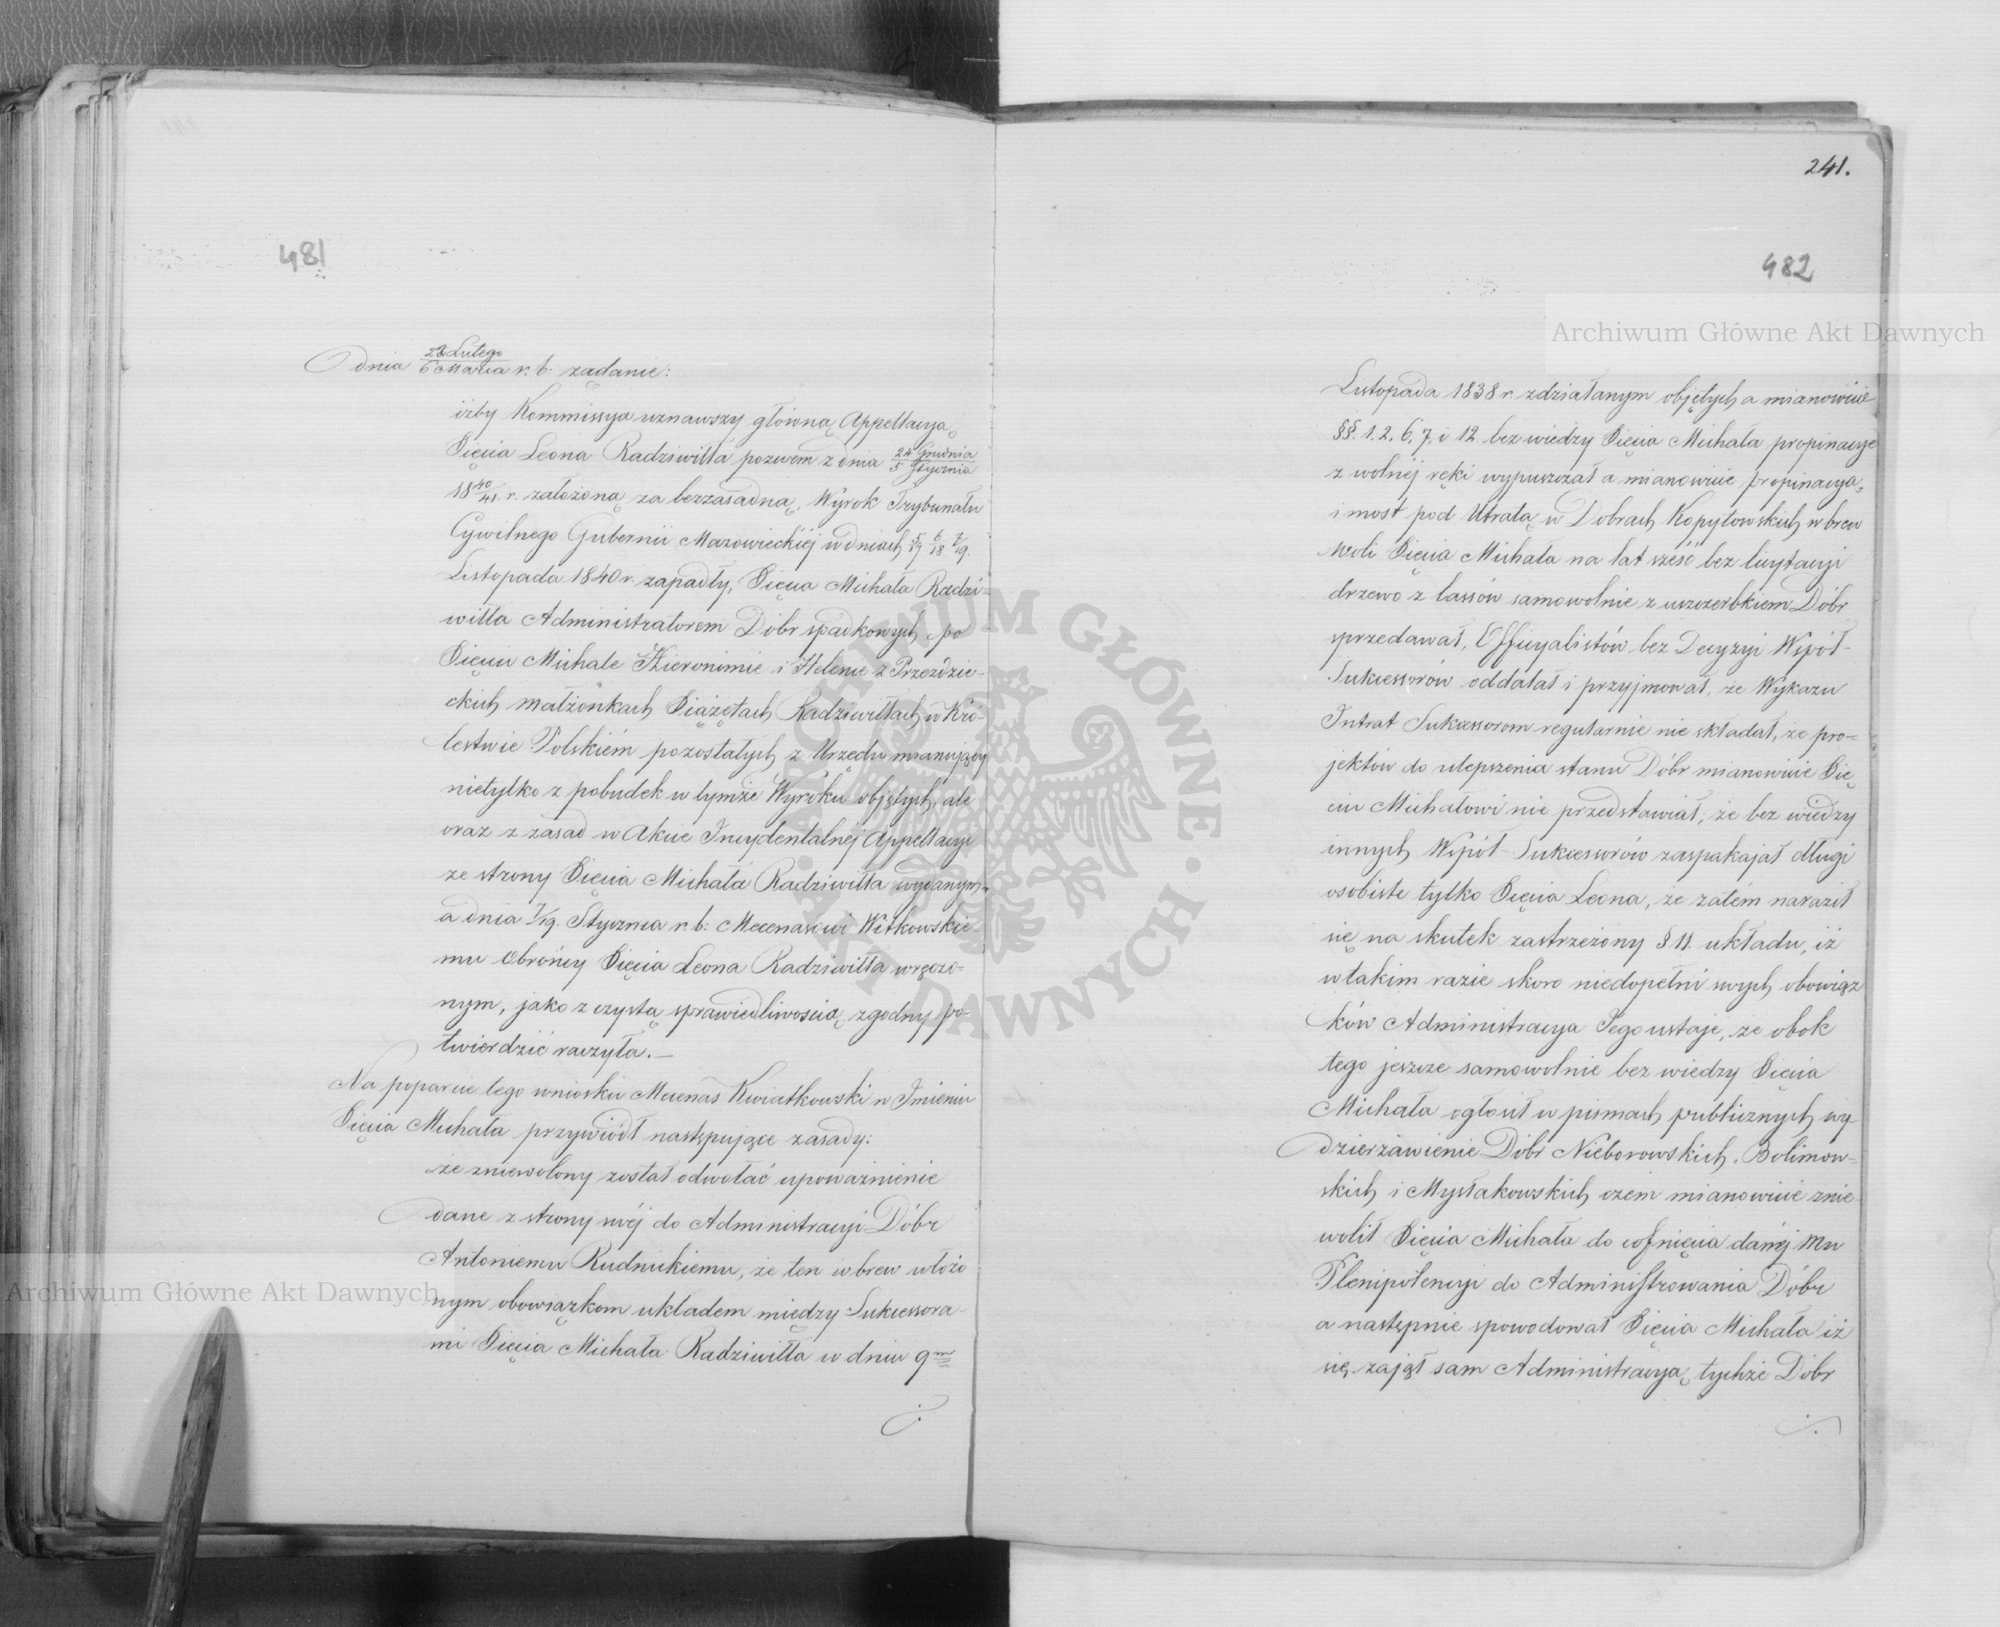 481
dnia 22 Lutego / 6 Marca r. b: żądanie:
iżby Kommissya uznawszy główną Appellacyą
Xięcia Leona Radziwiłła pozwem z dnia 24 Grudnia / 5 Stycznia
18 40/41. r. założoną za bezzasadną, Wyrok Trybunału
Cywilnego Gubernii Mazowieckiéj w dniach 5/17 6/18 7/19.
Listopada 1840 r. zapadły, Xięcia Michała Radzi-
wiłła Administratorem Dóbr spadkowych po
Xięciu Michale Hieronimie i Helenie z Przezdzie-
ckich małżonkach Xiążętach Radziwiłłach w Kró-
lestwie Polskiém pozostałych z Urzędu mianujący
nietylko z pobudek w tymże Wyroku objętych, ale
oraz z zasad w Akcie Incydentalnéj Appellacyi
ze strony Xięcia Michała Radziwiłła wydanym
a dnia 7/19. Stycznia r. b: Mecenasowi Witkowskie-
mu Obrońcy Xięcia Leona Radziwiłła wręczo-
nym, jako z czystą sprawiedliwością zgodny po-
twierdzić raczyła.—
Na poparcie tego wniosku Mecenas Kwiatkowski w Imieniu
Xięcia Michała przywiódł następujące zasady:
że zniewolony został odwołać upoważnienie
dane z strony swéj do Administracyi Dóbr
Antoniemu Rudnickiemu, że ten wbrew włożo
nym obowiązkom układem między Sukcessora-
mi Xięcia Michała Radziwiłła w dniu 9m
241.
482
Listopada 1838 r zdziałanym objętych a mianowicie
§§. 1. 2. 6. 7. i 12 bez wiedzy Xięcia Michała propinacye
z wolnéj ręki wypuszczał a mianowicie propinacyą
i most pod Utratą w Dobrach Kopytowskich wbrew
woli Xięcia Michała na lat sześć bez licytacyi
drzewo z lassów samowolnie z uszczerbkiem Dóbr
sprzedawał, Officyalistów bez Decyzyi Współ-
Sukcessorów oddalał i przyjmował, że Wykazu
Intrat Sukcessorom regularnie nie składał, że pro-
jektów do ulepszenia stanu Dóbr mianowicie Xię
ciu Michałowi nie przedstawiał, że bez wiedzy
innych Współ-Sukcessorów zaspakajał długi
osobiste tylko Xięcia Leona, że zatém naraził
się na skutek zastrzeżony § 11. układu, iż
w takim razie skoro niedopełni swych obowiąz
ków Administracya Jego ustaje, że obok
tego jeszcze samowolnie bez wiedzy Xięcia
Michała ogłosił w pismach publicznych wy
dzierżawienie Dóbr Nieborowskich, Bolimow-
skich i Mysłakowskich czem mianowicie znie
wolił Xięcia Michała do cofnięcia danéj mu
Plenipotencyi do Administrowania Dóbr
a następnie spowodował Xięcia Michała iż
się zajął sam Administracyą tychże Dóbr
Archiwum Główne Akt Dawnych
Archiwum Główne Akt Dawnych
ARCHIWUM GŁÓWNE AKT DAWNYCH